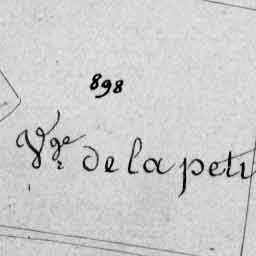 898
Vge de la peti